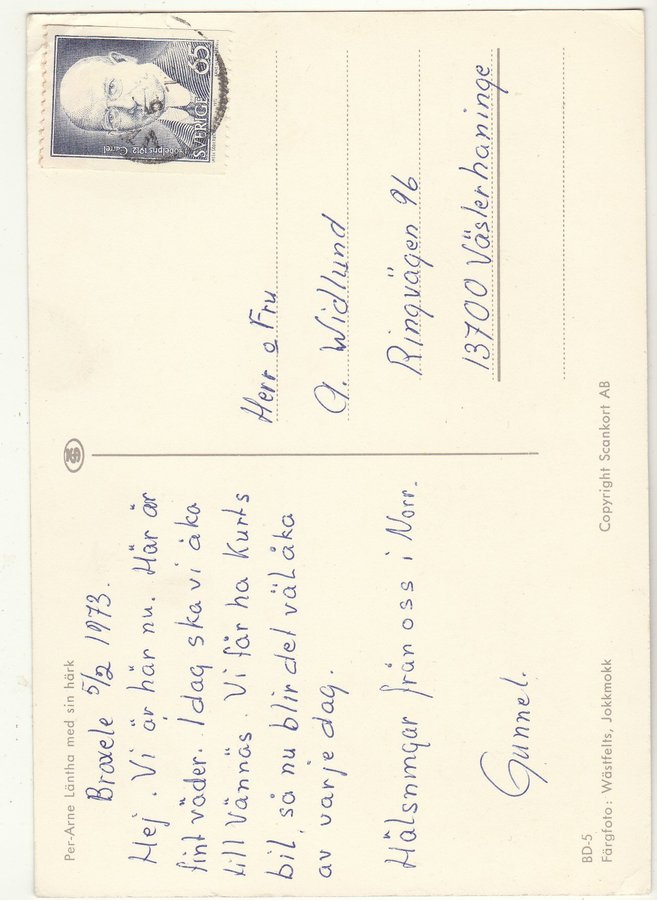 Per-Arne Läntha med sin härk
Braxele 5/2 1973.
Hej. Vi är här nu. Här är
fint väder. Idag ska vi åka
till Vännäs. Vi får ha Kurts
bil, så nu blir det väl åka
av varje dag.
Hälsningar från oss i Norr.
Gunnel.
BD-5
Färgfoto: Wästfelts, Jokkmokk
Copyright Scankort AB
SVERIGE 65
Nobelpris 1912 Carrel
Herr o Fru
G. Widlund
Ringvägen 96
13700 Västerhaninge